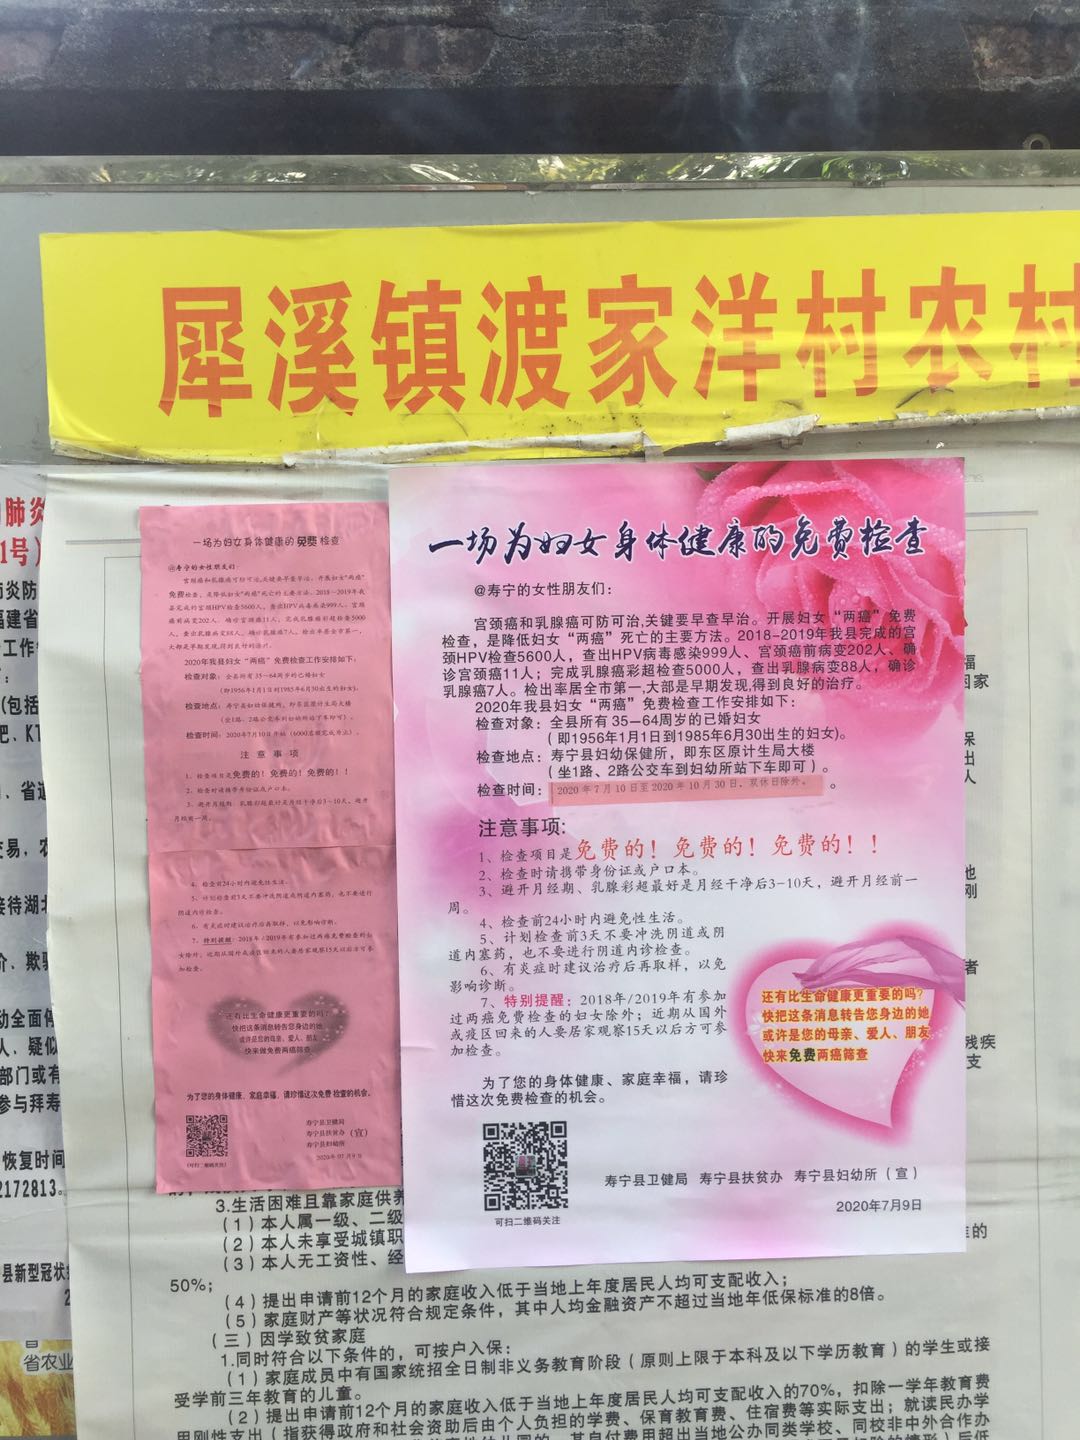 犀溪镇渡家洋村农村
一场为妇女身体健康的免费检查
@寿宁的女性朋友们：
宫颈癌和乳腺癌可防可治,关键要早查早治。开展妇女“两癌”免费
检查，是降低妇女“两癌”死亡的主要方法。2018-2019年我县完成的宫
颈HPV检查5600人，查出HPV病毒感染999人、宫颈癌前病变202人、确
诊宫颈癌11人；完成乳腺癌彩超检查5000人，查出乳腺病变88人，确诊
乳腺癌7人。检出率居全市第一,大部是早期发现,得到良好的治疗。
2020年我县妇女“两癌”免费检查工作安排如下：
检查对象：全县所有35-64周岁的已婚妇女
（即1956年1月1日到1985年6月30出生的妇女)。
检查地点：寿宁县妇幼保健所，即东区原计生局大楼
（坐1路、2路公交车到妇幼所站下车即可）。
检查时间：2020年7月10日至2020年10月30日，双休日除外。。
注意事项:
1、检查项目是免费的！免费的！免费的！！
2、检查时请携带身份证或户口本。
3、避开月经期、乳腺彩超最好是月经干净后3-10天，避开月经前一
周。
4、检查前24小时内避免性生活。
5、计划检查前3天不要冲洗阴道或阴
道内塞药，也不要进行阴道内诊检查。
6、有炎症时建议治疗后再取样，以免
影响诊断。
7、特别提醒：2018年/2019年有参加
过两癌免费检查的妇女除外；近期从国外
或疫区回来的人要居家观察15天以后方可参
加检查。
还有比生命健康更重要的吗?
快把这条消息转告您身边的她
或许是您的母亲、爱人、朋友
快来免费两癌筛查
为了您的身体健康、家庭幸福，请珍
惜这次免费检查的机会。
可扫二维码关注
寿宁县卫健局 寿宁县扶贫办 寿宁县妇幼所（宣）
2020年7月9日
一场为妇女身体健康的免费检查
@寿宁的女性朋友们：
宫颈癌和乳腺癌可防可治,关键要早查早治。开展妇女“两癌”
免费检查，是降低妇女“两癌”死亡的主要方法。2018-2019年我
县完成的宫颈HPV检查5600人，查出HPV病毒感染999人、宫颈
癌前病变202人、确诊宫颈癌11人；完成乳腺癌彩超检查5000
人，查出乳腺病变88人，确诊乳腺癌7人。检出率居全市第一，
大部是早期发现,得到良好的治疗。
2020年我县妇女“两癌”免费检查工作安排如下：
检查对象：全县所有35-64周岁的已婚妇女
（即1956年1月1日到1985年6月30出生的妇女)。
检查地点：寿宁县妇幼保健所，即东区原计生局大楼
（坐1路、2路公交车到妇幼所站下车即可）。
检查时间：2020年7月10日开始（6000名额完成为止）。
注意事项
1、检查项目是免费的！免费的！免费的！！
2、检查时请携带身份证或户口本。
3、避开月经期、乳腺彩超最好是月经干净后3-10天，避开
月经前一周。
4、检查前24小时内避免性生活。
5、计划检查前3天不要冲洗阴道或阴道内塞药，也不要进行
阴道内诊检查。
6、有炎症时建议治疗后再取样，以免影响诊断。
7、特别提醒：2018年/2019年有参加过两癌免费检查的妇
女除外；近期从国外或疫区回来的人要居家观察15天以后方可参
加检查。
还有比生命健康更重要的吗?
快把这条消息转告您身边的她
或许是您的母亲、爱人、朋友
快来做免费两癌筛查
为了您的身体健康、家庭幸福，请珍惜这次免费检查的机会。
(可扫二维码关注)
寿宁县卫健局
寿宁县扶贫办（宣）
寿宁县妇幼所
2020年07月9日
3.生活困难且靠家庭供养
（1）本人属一级、二级
（2）本人未享受城镇职
（3）本人无工资性、经
50%；
（4）提出申请前12个月的家庭收入低于当地上年度居民人均可支配收入；
（5）家庭财产等状况符合规定条件，其中人均金融资产不超过当地年低保标准的8倍。
（三）因学致贫家庭
1.同时符合以下条件的，可按户入保：
（1）家庭成员中有国家统招全日制非义务教育阶段（原则上限于本科及以下学历教育）的学生或接
受学前三年教育的儿童。
（2）提出申请前12个月的家庭收入低于当地上年度居民人均可支配收入的70%，扣除一学年教育费
用刚性支出（指获得政府和社会资助后由个人负担的学费、保育教育费、住宿费等实际支出；就读民办学
肺炎
1号）
肺炎防
福建省
工作
(包括
吧、KT
、省道
交易，农
接待湖北
价、欺骗
动全面停
人、疑似
部门或有
参与拜寿
恢复时间
2172813。
县新型冠状
省农业
残疾
支